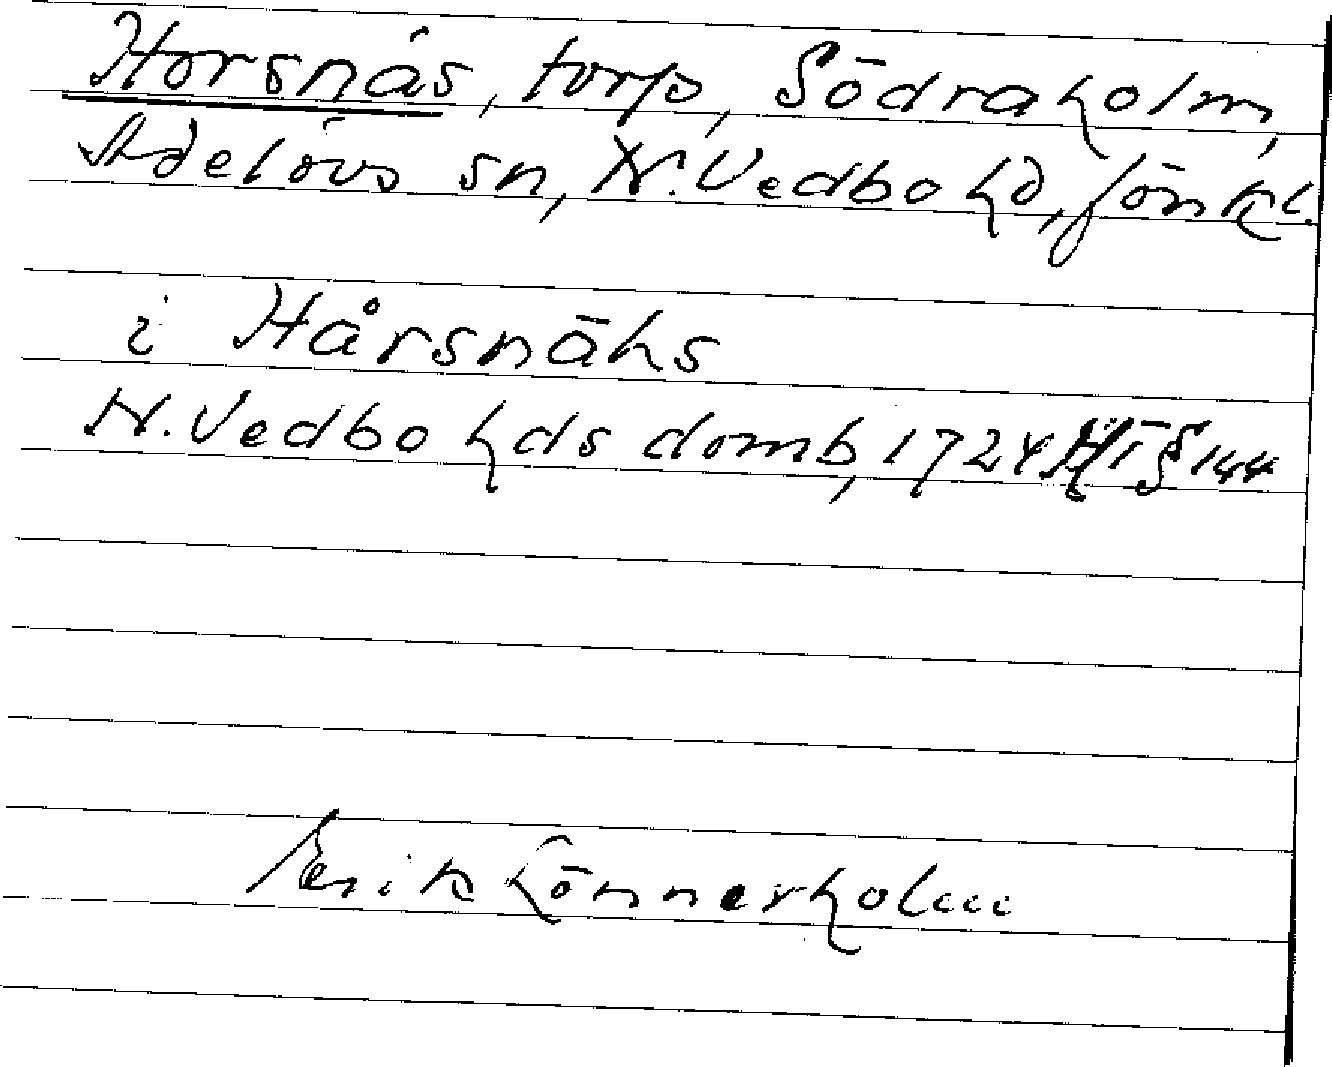 Horsnäs, torp, Södraholm,
Adelövs sn, N. Vedbo hd, Jönk l.
i Hårsnähs
N. Vedbo hds domb, 1724 HT § 144
Erik Lönnerholm